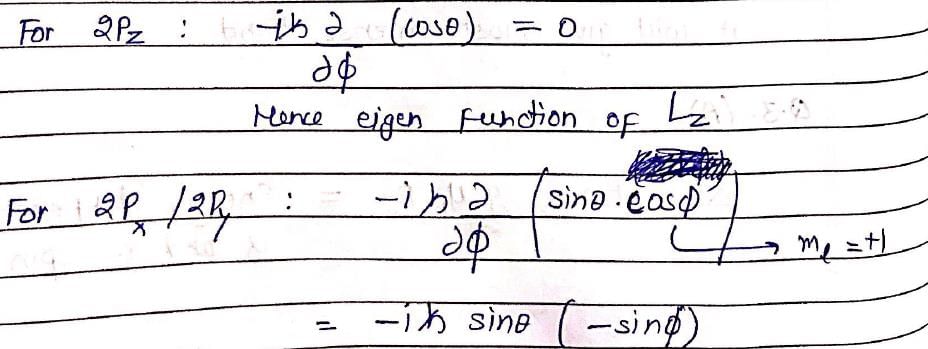 For 2Pz : -iħ ∂/∂φ (cosθ) = 0
Hence eigen function of Lz
For 2Px / 2Py : -iħ ∂/∂φ (sinθ · cosφ) → mℓ = +1
= -iħ sinθ (-sinφ)